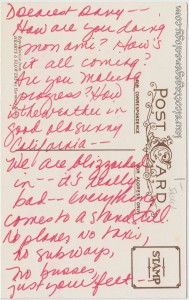 Dearest Davy --
How are you doing
mon ami? How's
it all coming?
Are you making
progress? How
is the weather in
good old sunny
California --
We are blizzarded
in -- it's really
bad -- everything
comes to a standstill.
No planes no taxis,
no subways,
no busses,
just your feet!
POST CARD
FOR CORRESPONDENCE
STAMP